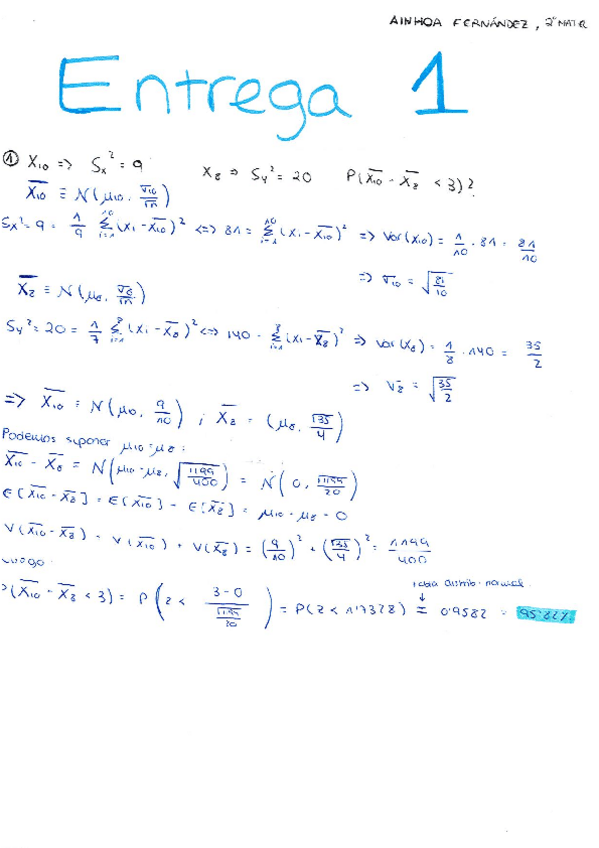 AINHOA FERNÁNDEZ, 2º MATES
Entrega 1
① X₁₀ => Sx² = 9   X₈ => Sy² = 20   P(X̄₁₀ - X̄₈ < 3)?
X̄₁₀ ≡ N(μ₁₀, σ₁₀/√n)
Sx² = 9 = 1/9 Σᵢ₌₁¹⁰ (xᵢ - X̄₁₀)² <=> 81 = Σᵢ₌₁¹⁰ (xᵢ - X̄₁₀)² => Var(X₁₀) = 1/10 · 81 = 81/10
=> σ₁₀ = √(81/10)
X̄₈ ≡ N(μ₈, σ₈/√n)
Sy² = 20 = 1/7 Σᵢ₌₁⁸ (xᵢ - X̄₈)² <=> 140 = Σᵢ₌₁⁸ (xᵢ - X̄₈)² => Var(X₈) = 1/8 · 140 = 35/2
=> σ₈ = √(35/2)
=> X̄₁₀ ≡ N(μ₁₀, 9/10) ; X̄₈ = (μ₈, √35/4)
Podemos suponer μ₁₀ = μ₈ :
X̄₁₀ - X̄₈ = N(μ₁₀ - μ₈, √(1199/400)) = N(0, √1199/20)
E[X̄₁₀ - X̄₈] = E[X̄₁₀] - E[X̄₈] = μ₁₀ - μ₈ = 0
V(X̄₁₀ - X̄₈) = V(X̄₁₀) + V(X̄₈) = (9/10)² + (√35/4)² = 1199/400
Luego:
tabla distrib. normal
P(X̄₁₀ - X̄₈ < 3) = P(Z < (3-0)/(√1199/20)) = P(Z < 1'7328) = 0'9582 = 95'82%